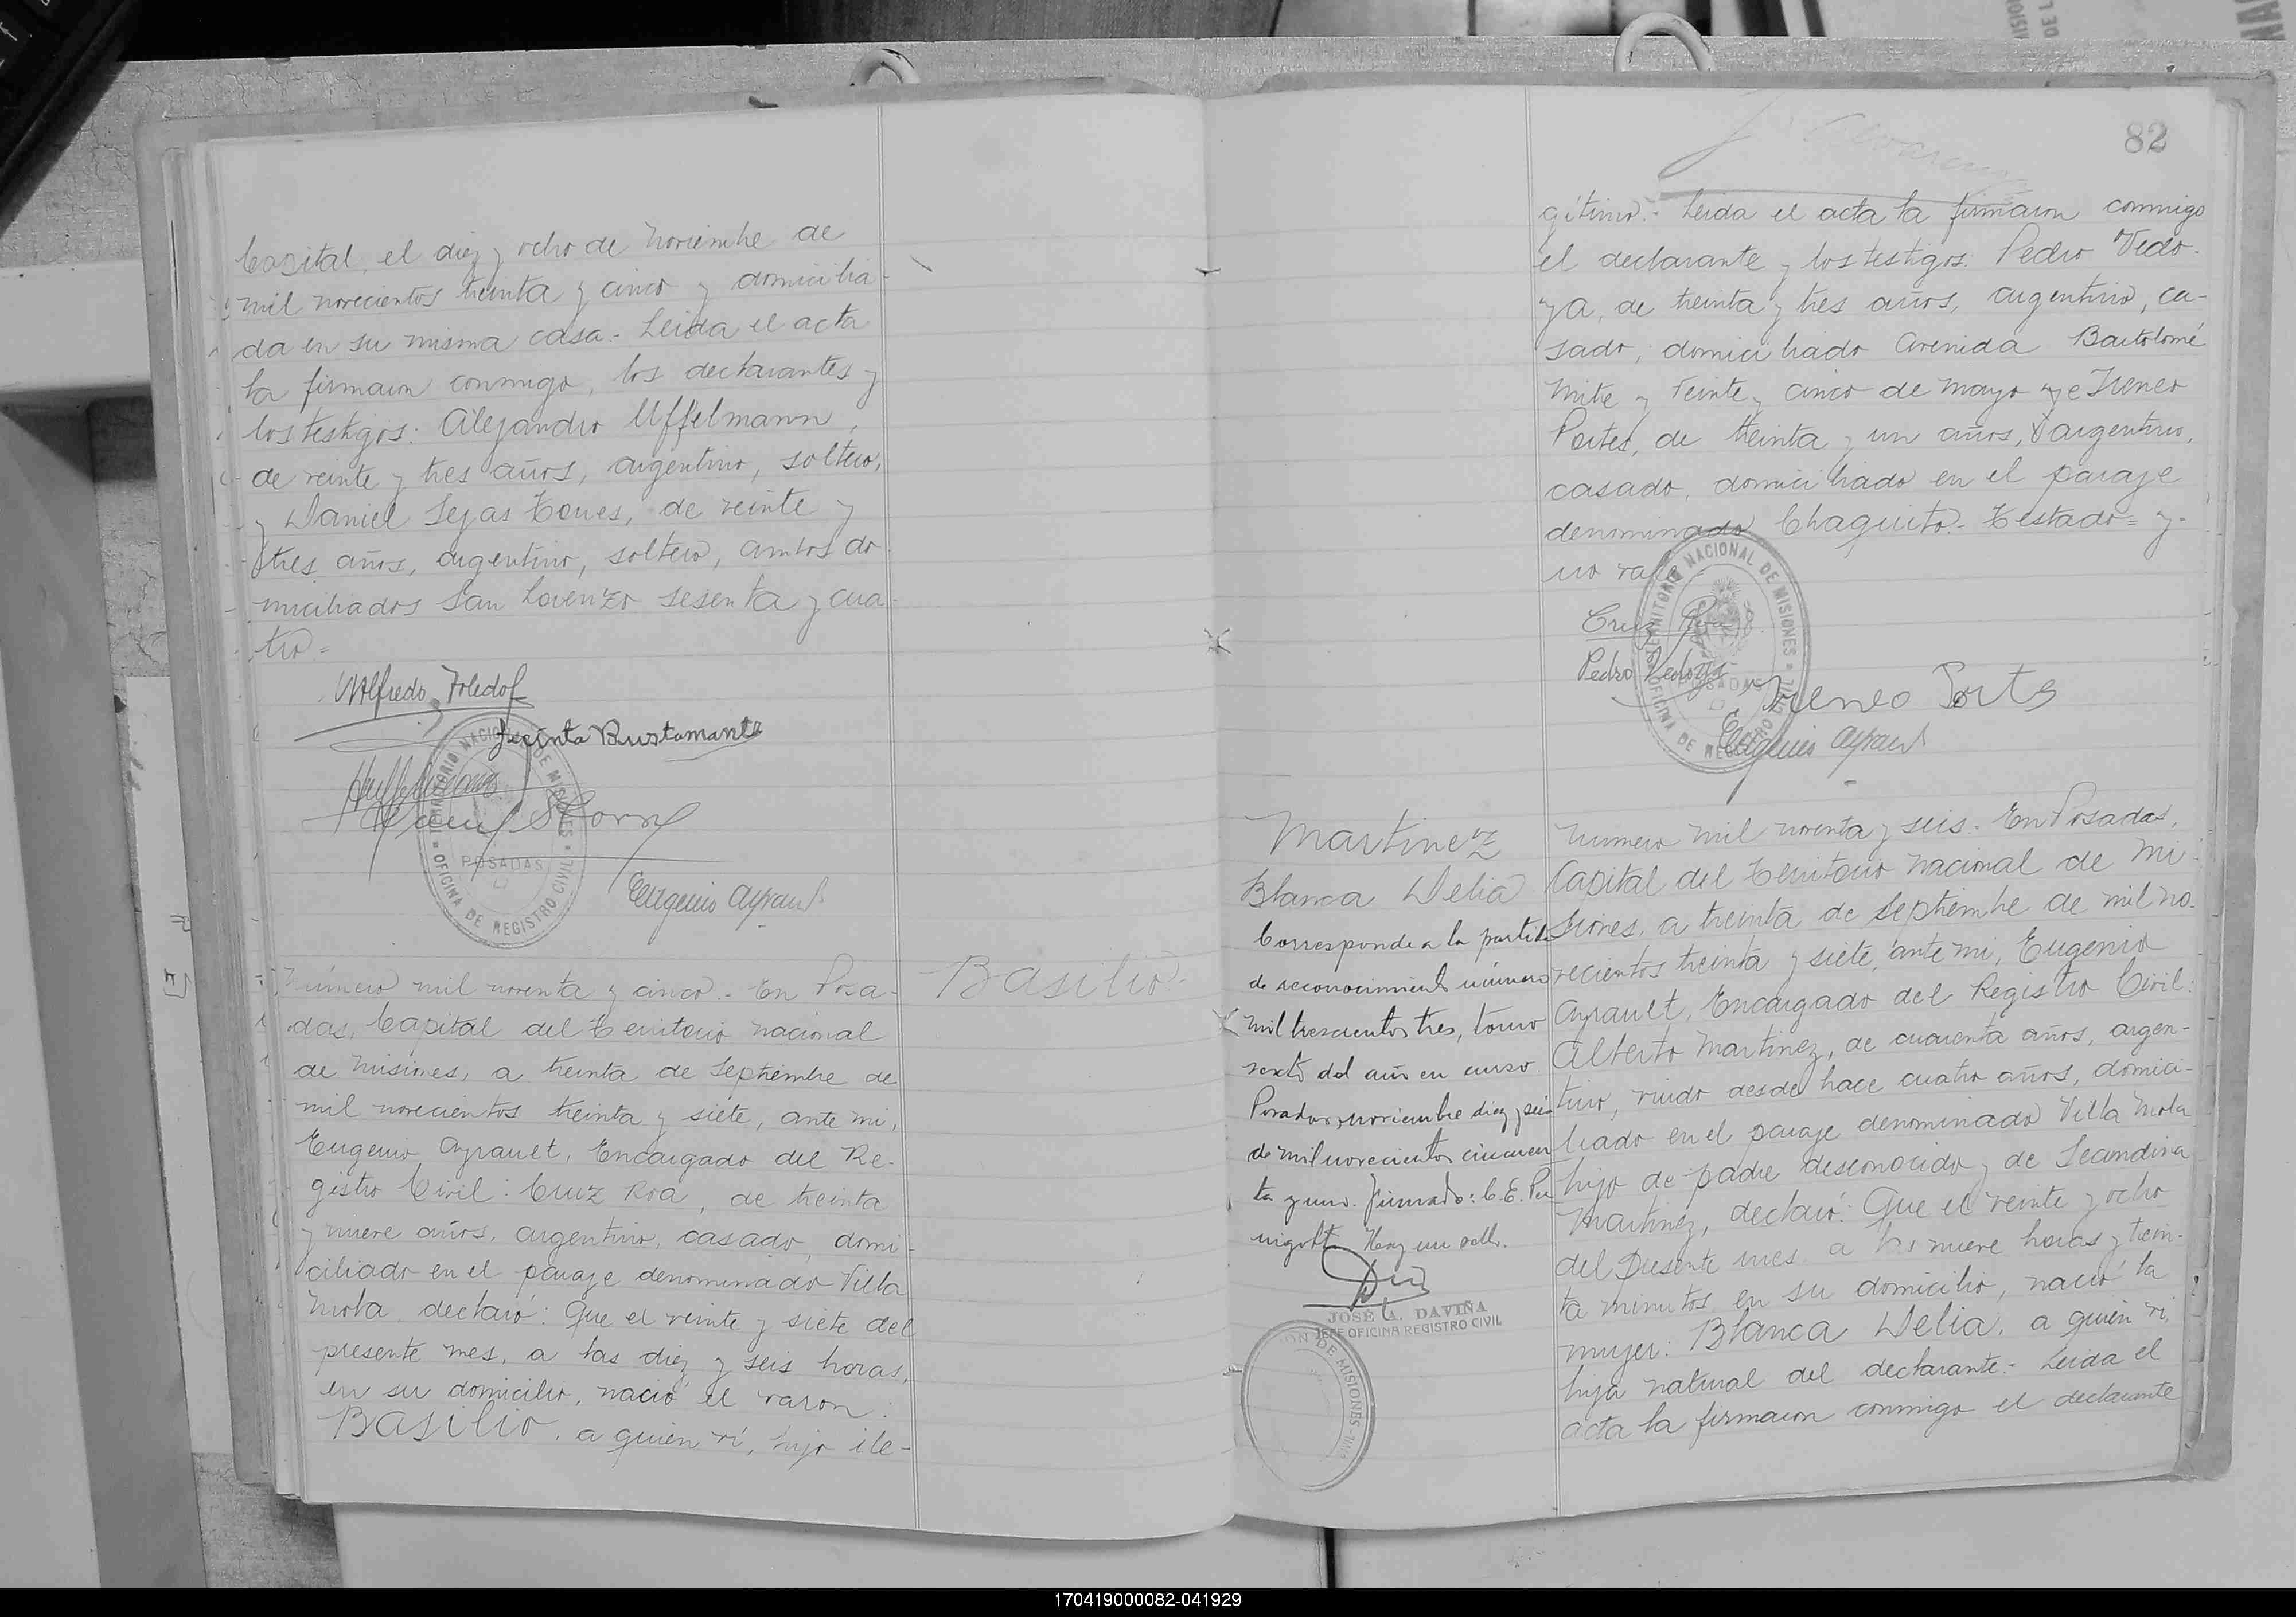 Capital, el diez y ocho de noviembre de
mil novecientos treinta y cinco y domicilia-
da en su misma casa.- Leida el acta
la firmaron conmigo, los declarantes y
los testigos: Alejandro Uffelmann,
de veinte y tres años, argentino, soltero,
y Daniel Sejas Torres, de veinte y
tres años, argentino, soltero, ambos do
miciliados San Lorenzo sesenta y cua
tro=
Wilfredo Toledo
Jacinta Bustamante
TERRITORIO NACIONAL DE MISIONES
POSADAS
OFICINA DE REGISTRO CIVIL
Eugenio Ayrault
Número mil noventa y cinco.- En Posa-
das, Capital del Territorio Nacional
de Misiones, a treinta de Septiembre de
mil novecientos treinta y siete, ante mi,
Eugenio Ayrault, Encargado del Re-
gistro Civil: Cruz Roa, de treinta
y nueve años, argentino, casado, domi-
ciliado en el paraje denominado Villa
Mola declaró: Que el veinte y siete del
presente mes, a las diez y seis horas,
en su domicilio, nació el varon:
Basilio, a quien ví, hijo ile-
Basilio-
82
gítimo.- Leida el acta la firmaron conmigo
el declarante y los testigos: Pedro Vedo-
ya, de treinta y tres años, argentino, ca-
sado, domiciliado Avenida Bartolomé
Mitre y Veinte y cinco de Mayo y e Ireneo
Portes, de treinta y un años, argentino,
casado, domiciliado en el paraje
denominado Chaquito.- Testado= y-
no vale
TERRITORIO NACIONAL DE MISIONES
POSADAS
OFICINA DE REGISTRO CIVIL
Cruz Roa
Pedro Vedoya
Ireneo Portes
Eugenio Ayrault
Martinez
Blanca Delia
Corresponde a la partida
de reconocimiento número
mil trescientos tres, tomo
sexto del año en curso
Posadas, noviembre diez y seis
de mil novecientos cincuen
ta y uno. Firmado: C. E. Per
nigotti Hay un sello.
JOSÉ A. DAVIÑA
JEFE OFICINA REGISTRO CIVIL
DE MISIONES
Número mil noventa y seis. En Posadas,
Capital del Territorio Nacional de Mi-
siones, a treinta de Septiembre de mil no-
vecientos treinta y siete, ante mi, Eugenio
Ayrault, Encargado del Registro Civil:
Alberto Martinez, de cuarenta años, argen-
tino, viudo desde hace cuatro años, domici-
liado en el paraje denominado Villa Mola
hijo de padre desconocido y de Secundina
Martinez, declaró: Que el veinte y ocho
del presente mes a las nueve horas y trein-
ta minutos en su domicilio, nació la
mujer: Blanca Delia, a quien ví,
hija natural del declarante.- Leida el
acta la firmaron conmigo el declarante
170419000082-041929